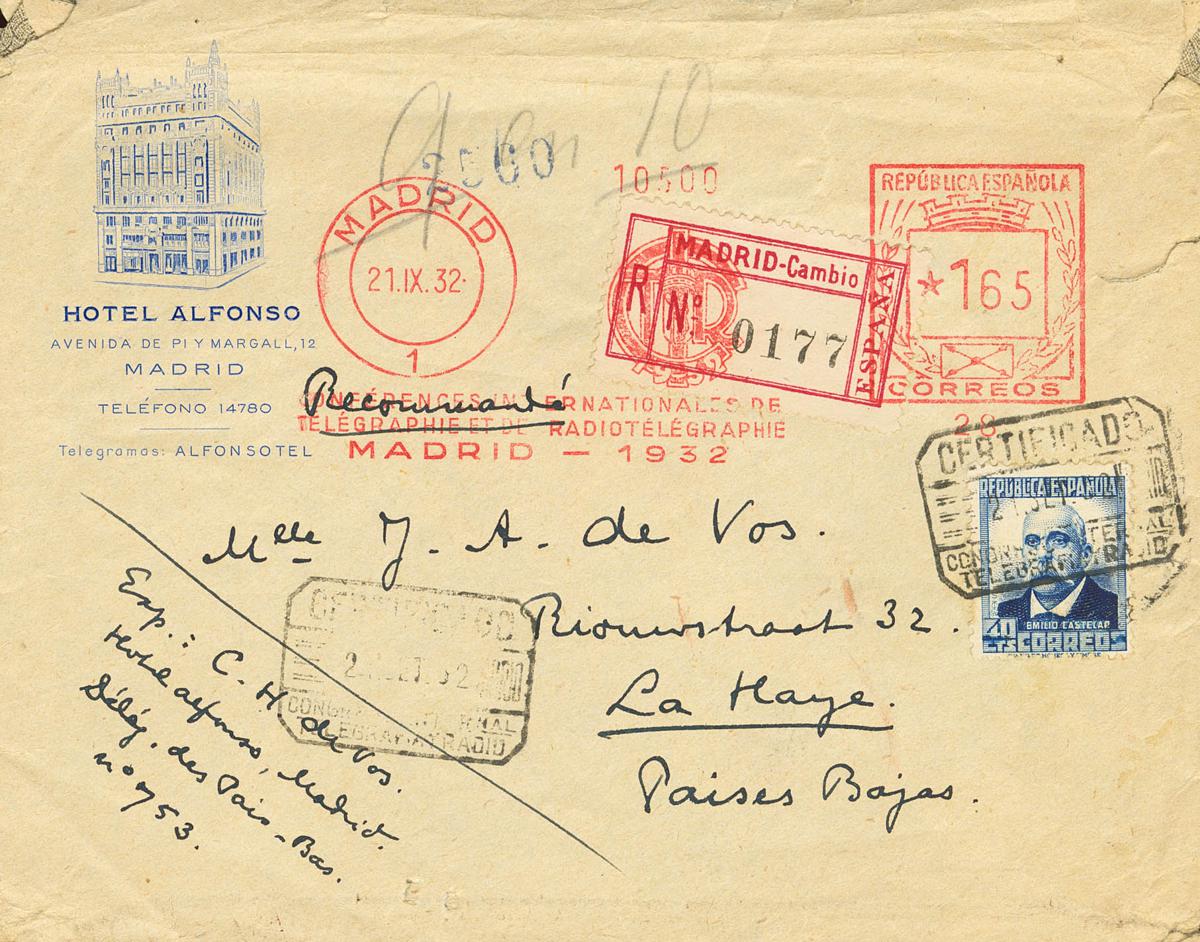 HOTEL ALFONSO
AVENIDA DE PI Y MARGALL, 12
MADRID
TELÉFONO 14780
Telegramas: ALFONSOTEL
10
2500
MADRID
21.IX.32
1
10500
R
MADRID-Cambio
Nº
0177
ESPAÑA
REPÚBLICA ESPAÑOLA
*165
CORREOS
28
Recommandé
CONFÉRENCES INTERNATIONALES DE
TÉLÉGRAPHIE ET DE RADIOTÉLÉGRAPHIE
MADRID — 1932
CERTIFICADO
REPUBLICA ESPAÑOLA
EMILIO CASTELAR
40 CTS CORREOS
TELEGRAFIA Y RADIO
Mlle J. A. de Vos.
Riouwstraat 32.
La Haye.
Paises Bajas.
Exp.: C. H. de Vos.
Hotel Alfonso, Madrid.
Délég. des Pais-Bas.
no 753.
CERTIFICADO
TELEGRAFIA Y RADIO